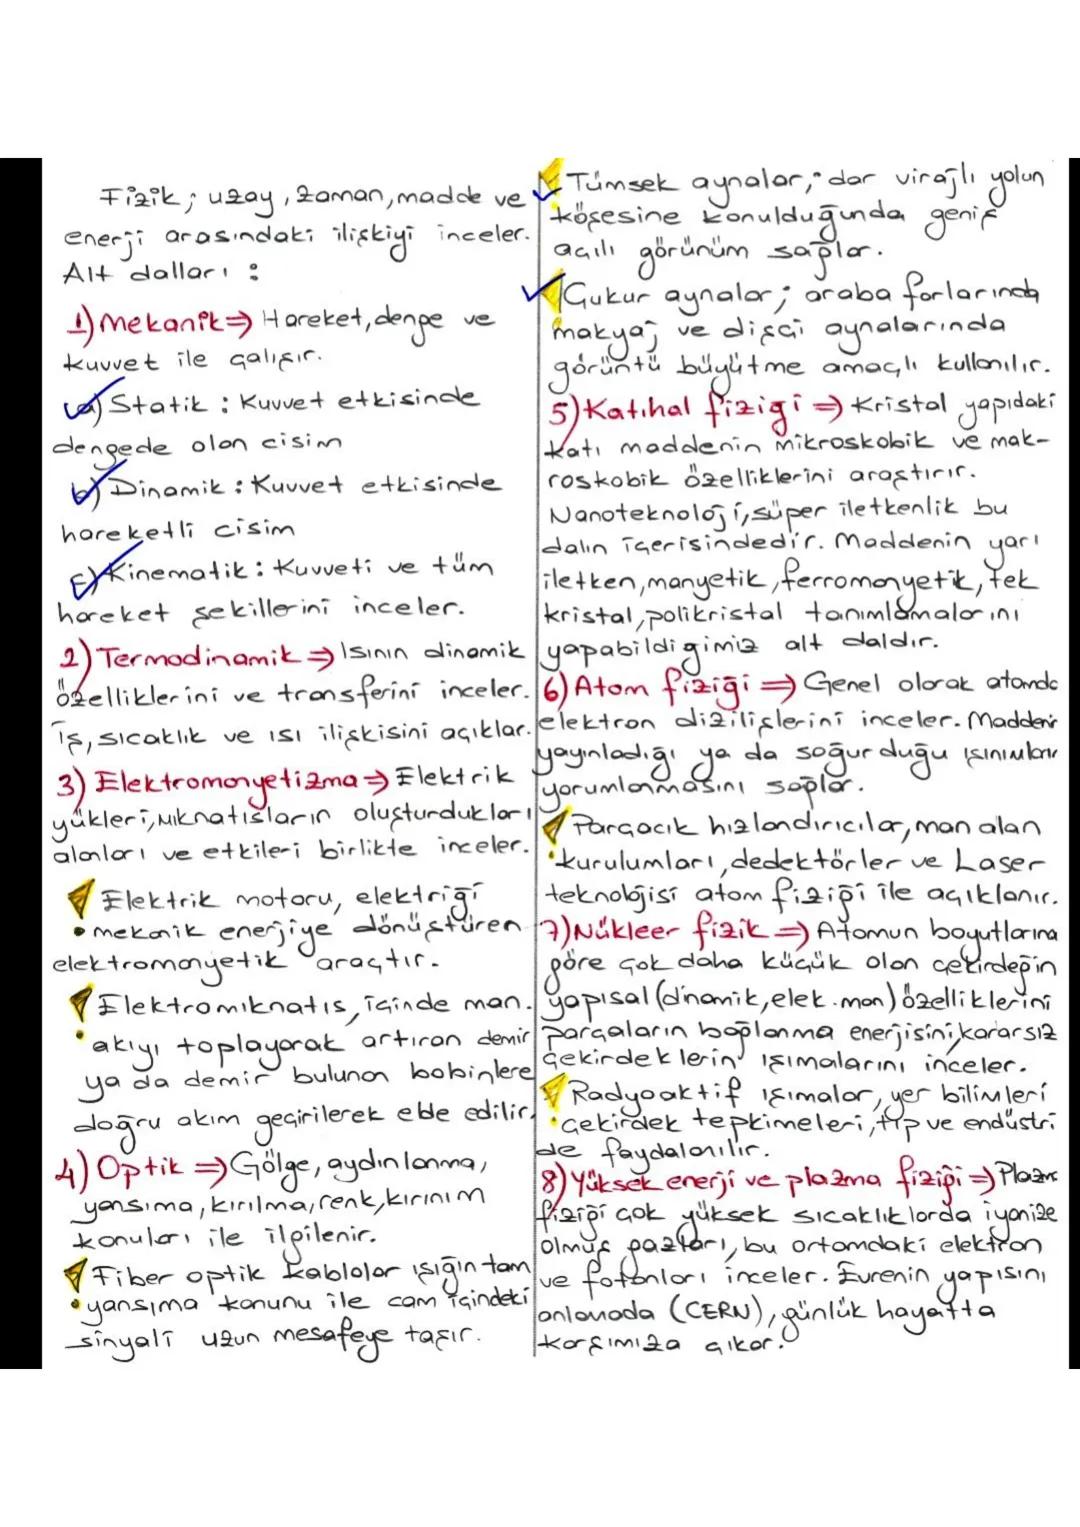 Fizik; uzay, zaman, madde ve
enerji arasındaki ilişkiyi inceler.
Alt dalları :
1) Mekanik ⇒ Hareket, denge ve
kuvvet ile çalışır.
a) Statik : Kuvvet etkisinde
dengede olan cisim
b) Dinamik : Kuvvet etkisinde
hareketli cisim
c) Kinematik : Kuvveti ve tüm
hareket şekillerini inceler.
2) Termodinamik ⇒ Isının dinamik
özelliklerini ve transferini inceler.
İş, sıcaklık ve ısı ilişkisini açıklar.
3) Elektromanyetizma ⇒ Elektrik
yükleri, mıknatısların oluşturdukları
alanları ve etkileri birlikte inceler.
Elektrik motoru, elektriği
mekanik enerjiye dönüştüren
elektromanyetik araçtır.
Elektromıknatıs, içinde man.
akıyı toplayarak artıran demir
ya da demir bulunan bobinlere
doğru akım geçirilerek elde edilir.
4) Optik ⇒ Gölge, aydınlanma,
yansıma, kırılma, renk, kırınım
konuları ile ilgilenir.
Fiber optik kablolar ışığın tam
yansıma kanunu ile cam içindeki
sinyali uzun mesafeye taşır.
Tümsek aynalar, dar virajlı yolun
köşesine konulduğunda geniş
açılı görünüm sağlar.
Çukur aynalar; araba farlarında
makyaj ve dişçi aynalarında
görüntü büyütme amaçlı kullanılır.
5) Katıhal fiziği ⇒ Kristal yapıdaki
katı maddenin mikroskobik ve mak-
roskobik özelliklerini araştırır.
Nanoteknoloji, süper iletkenlik bu
dalın içerisindedir. Maddenin yarı
iletken, manyetik, ferromanyetik, tek
kristal, polikristal tanımlamalarını
yapabildiğimiz alt daldır.
6) Atom fiziği ⇒ Genel olarak atomda
elektron dizilişlerini inceler. Maddenin
yayınladığı ya da soğurduğu ışınımların
yorumlanmasını sağlar.
Parçacık hızlandırıcılar, man alan
kurulumları, dedektörler ve Laser
teknolojisi atom fiziği ile açıklanır.
7) Nükleer fizik ⇒ Atomun boyutlarına
göre çok daha küçük olan çekirdeğin
yapısal (dinamik, elek. man) özelliklerini
parçaların bağlanma enerjisini, kararsız
çekirdeklerin ışımalarını inceler.
Radyoaktif ışımalar, yer bilimleri
çekirdek tepkimeleri, tıp ve endüstri
de faydalanılır.
8) Yüksek enerji ve plazma fiziği ⇒ Plazma
fiziği çok yüksek sıcaklıklarda iyonize
olmuş gazları, bu ortamdaki elektron
ve fotonları inceler. Evrenin yapısını
anlamada (CERN), günlük hayatta
karşımıza çıkar.